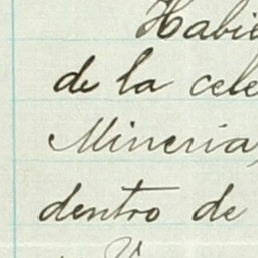 Habie
de la cele
Mineria,
dentro de